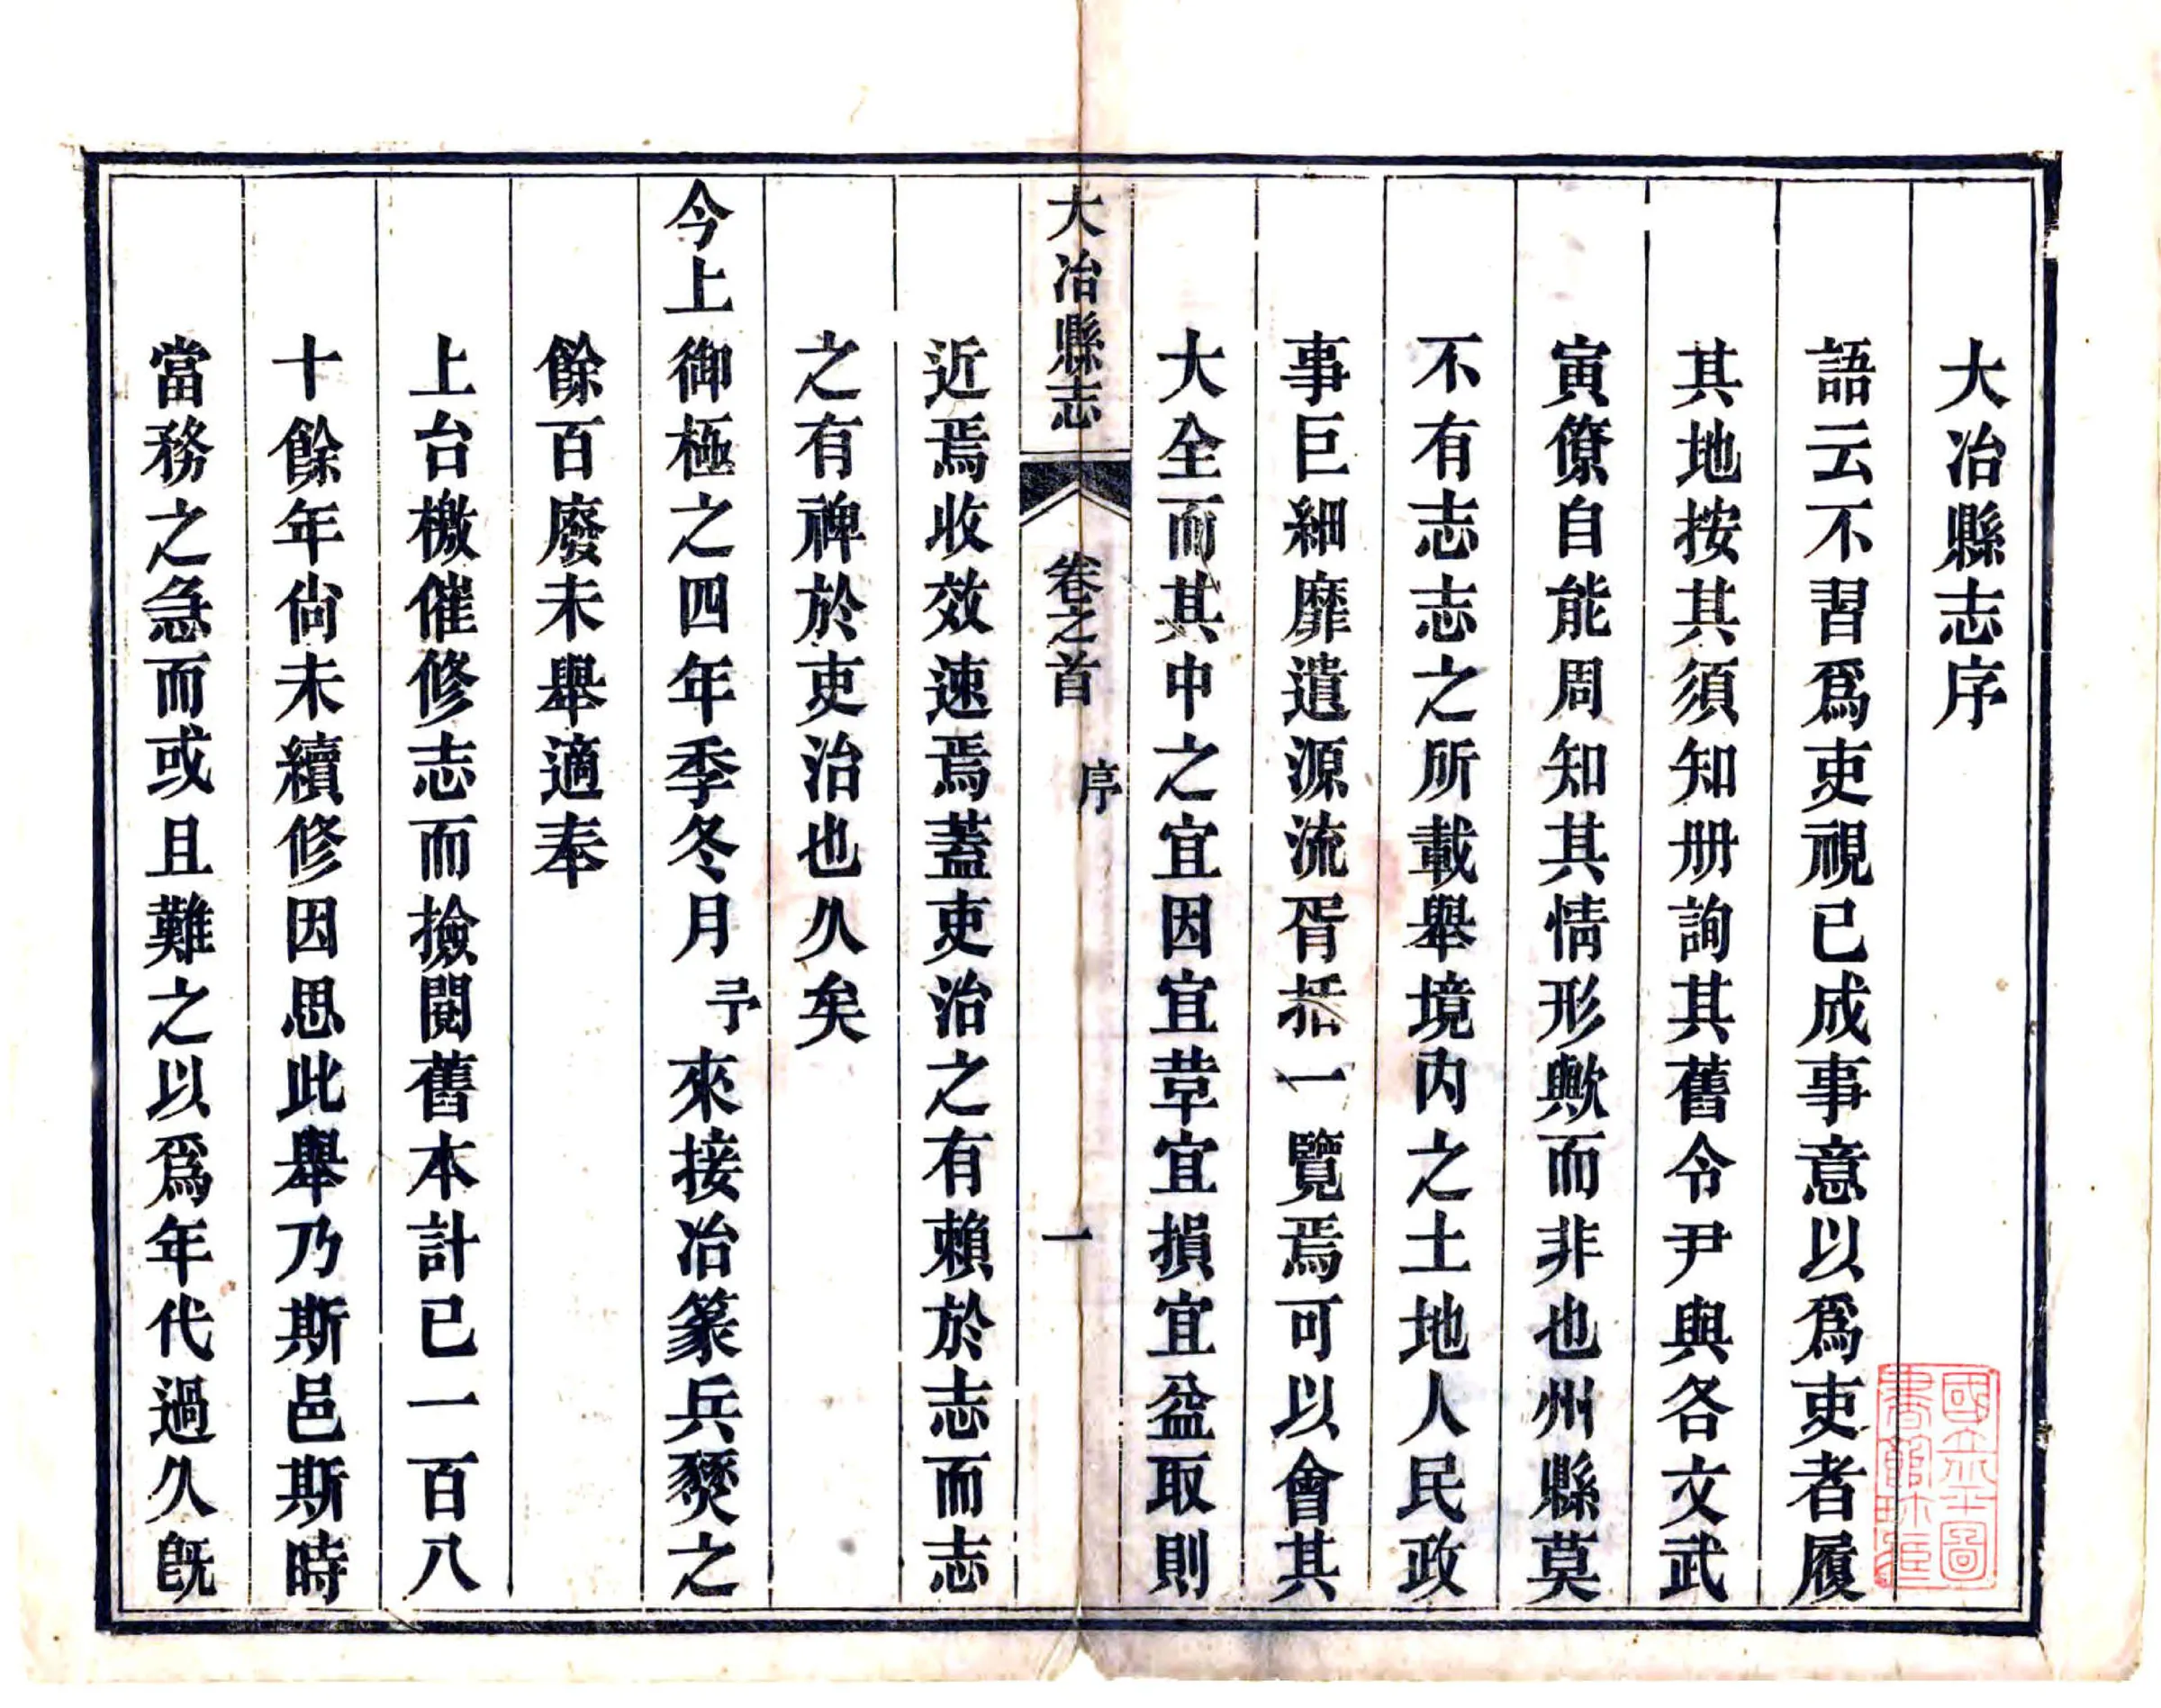 大冶縣志序
語云不習爲吏視已成事意以爲吏者履
其地按其須知册詢其舊令尹與各文武
寅僚自能周知其情形歟而非也州縣莫
不有志志之所載舉境内之土地人民政
事巨細靡遺源流胥括一覽焉可以會其
大全而其中之宜因宜革宜損宜益取則
大冶縣志
卷之首
序
一
近焉收效速焉蓋吏治之有賴於志而志
之有裨於吏治也久矣
今上御極之四年季冬月予來接冶篆兵燹之
餘百廢未舉適奉
上台檄催修志而撿閱舊本計已一百八
十餘年尙未續修因思此舉乃斯邑斯時
當務之急而或且難之以爲年代過久旣
國立北平圖
書館所藏